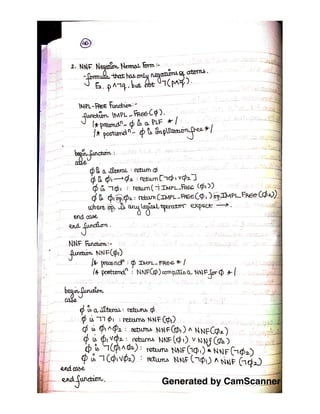 2. NNF Negation Normal Form :-
- formula that has only negations of atoms.
Ex. p ∧ ¬q . but not ¬(p∧q).
IMPL-FREE Function :-
function IMPL_FREE(φ).
/* precondn - φ is a PLF */
/* postcondn - φ is implication free */
begin function :
case
φ is a literal : return φ
φ is φ1 → φ2 : return [¬φ1 ∨ φ2]
φ is ¬φ1 : return (¬IMPL_FREE (φ1))
φ is φ1 op φ2 : return (IMPL_FREE(φ1) op IMPL_FREE(φ2))
where op is any logical operator except →.
end case
end function.
NNF Function :-
function NNF(φ)
/* precondn : φ IMPL_FREE */
/* postcondn : NNF(φ) computes a NNF for φ */
begin function
case
φ is a literal : returns φ
φ is ¬¬φ1 : returns NNF(φ1)
φ is φ1 ∧ φ2 : returns NNF(φ1) ∧ NNF(φ2)
φ is φ1 ∨ φ2 : returns NNF(φ1) ∨ NNF(φ2)
φ is ¬(φ1 ∧ φ2) : returns NNF(¬φ1) NNF(¬φ2)
φ is ¬(φ1 ∨ φ2) : returns NNF(¬φ1) ∧ NNF(¬φ2)
end case
end function.
Generated by CamScanner